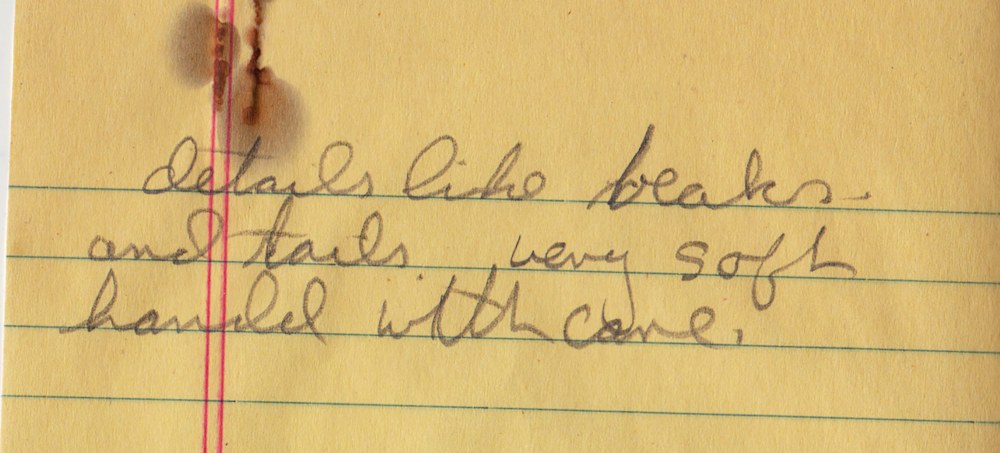 details like beaks
and tails. very soft
handel with care.